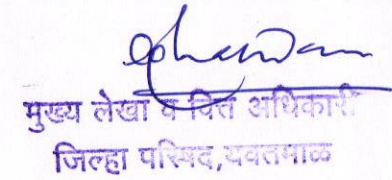 मुख्य लेखा व वित्त अधिकारी
जिल्हा परिषद,यवतमाळ